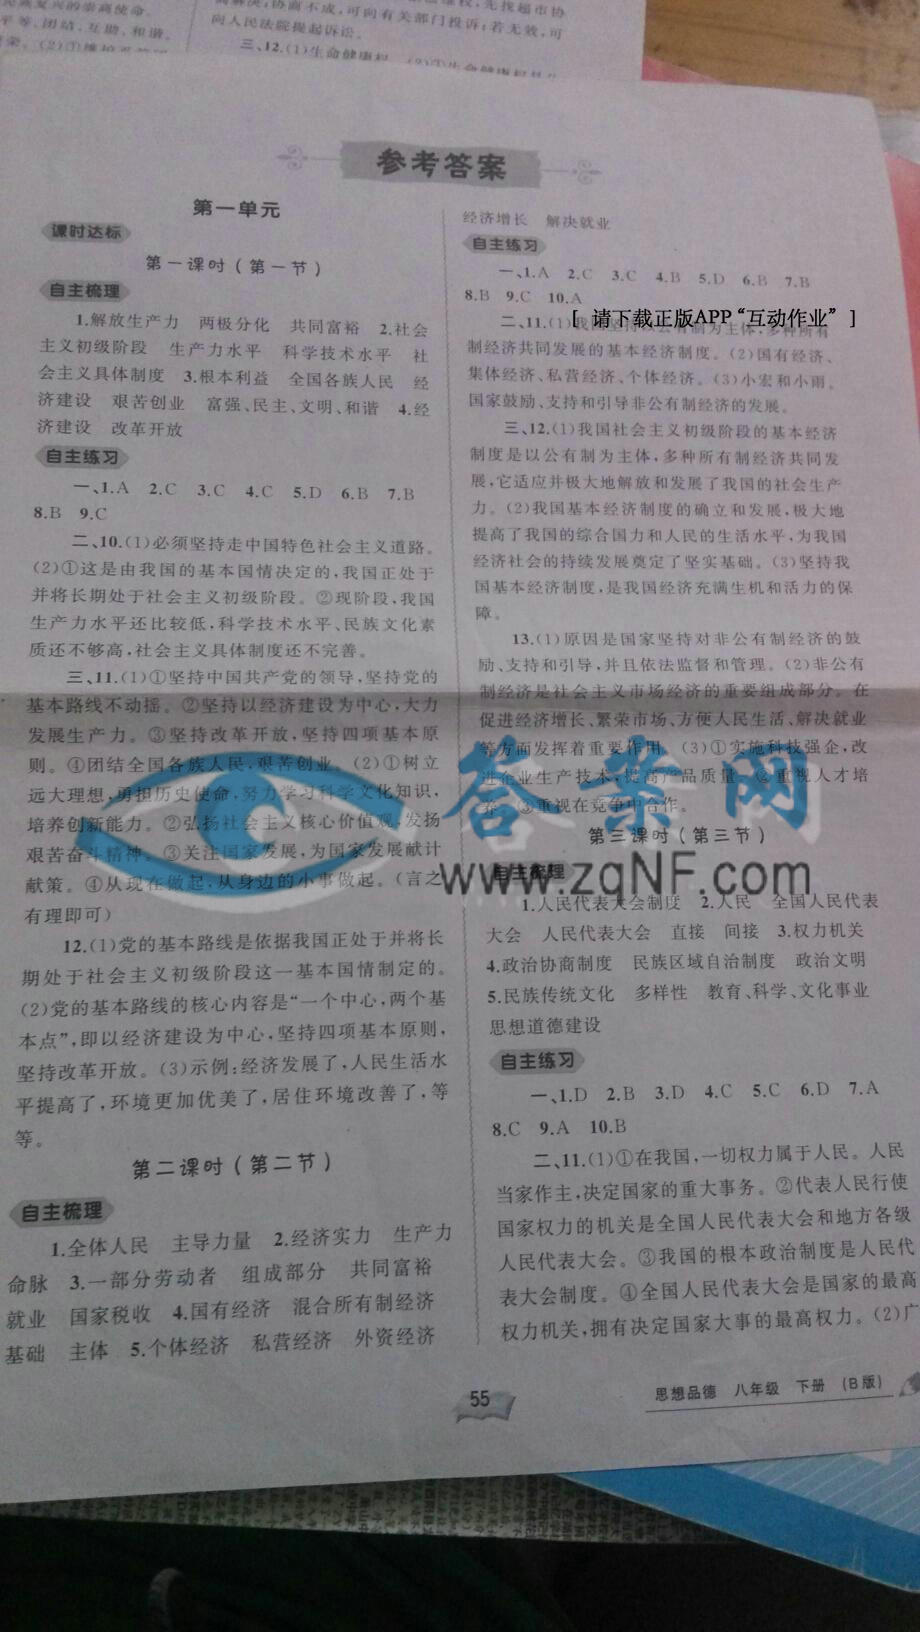 民族复兴的崇高使命。
平等、团结、互助、和谐。
商解决;协商不成,可向有关部门投诉;若无效,可
向人民法院提起诉讼。
三、12.(1)生命健康权
参考答案
第一单元
课时达标
第一课时(第一节)
自主梳理
1.解放生产力 两极分化 共同富裕 2.社会
主义初级阶段 生产力水平 科学技术水平 社
会主义具体制度 3.根本利益 全国各族人民 经
济建设 艰苦创业 富强、民主、文明、和谐 4.经
济建设 改革开放
自主练习
一、1.A 2.C 3.C 4.C 5.D 6.B 7.B
8.B 9.C
二、10.(1)必须坚持走中国特色社会主义道路。
(2)①这是由我国的基本国情决定的,我国正处于
并将长期处于社会主义初级阶段。②现阶段,我国
生产力水平还比较低,科学技术水平、民族文化素
质还不够高,社会主义具体制度还不完善。
三、11.(1)①坚持中国共产党的领导,坚持党的
基本路线不动摇。②坚持以经济建设为中心,大力
发展生产力。③坚持改革开放,坚持四项基本原
则。④团结全国各族人民,艰苦创业。(2)①树立
远大理想,勇担历史使命,努力学习科学文化知识,
培养创新能力。②弘扬社会主义核心价值观,发扬
艰苦奋斗精神。③关注国家发展,为国家发展献计
献策。④从现在做起,从身边的小事做起。(言之
有理即可)
12.(1)党的基本路线是依据我国正处于并将长
期处于社会主义初级阶段这一基本国情制定的。
(2)党的基本路线的核心内容是“一个中心,两个基
本点”,即以经济建设为中心,坚持四项基本原则,
坚持改革开放。(3)示例:经济发展了,人民生活水
平提高了,环境更加优美了,居住环境改善了,等
等。
第二课时(第二节)
自主梳理
1.全体人民 主导力量 2.经济实力 生产力
命脉 3.一部分劳动者 组成部分 共同富裕
就业 国家税收 4.国有经济 混合所有制经济
基础 主体 5.个体经济 私营经济 外资经济
经济增长 解决就业
自主练习
一、1.A 2.C 3.C 4.B 5.D 6.B 7.B
8.B 9.C 10.A
[ 请下载正版APP“互动作业” ]
二、11.(1)我国坚持以公有制为主体,多种所有
制经济共同发展的基本经济制度。(2)国有经济、
集体经济、私营经济、个体经济。(3)小宏和小雨。
国家鼓励、支持和引导非公有制经济的发展。
三、12.(1)我国社会主义初级阶段的基本经济
制度是以公有制为主体,多种所有制经济共同发
展,它适应并极大地解放和发展了我国的社会生产
力。(2)我国基本经济制度的确立和发展,极大地
提高了我国的综合国力和人民的生活水平,为我国
经济社会的持续发展奠定了坚实基础。(3)坚持我
国基本经济制度,是我国经济充满生机和活力的保
障。
13.(1)原因是国家坚持对非公有制经济的鼓
励、支持和引导,并且依法监督和管理。(2)非公有
制经济是社会主义市场经济的重要组成部分。在
促进经济增长、繁荣市场、方便人民生活、解决就业
等方面发挥着重要作用。(3)①实施科技强企,改
进企业生产技术,提高产品质量。②重视人才培
养。③重视在竞争中合作。
答案网
www.zqNF.com
第三课时(第三节)
自主梳理
1.人民代表大会制度 2.人民 全国人民代表
大会 人民代表大会 直接 间接 3.权力机关
4.政治协商制度 民族区域自治制度 政治文明
5.民族传统文化 多样性 教育、科学、文化事业
思想道德建设
自主练习
一、1.D 2.B 3.D 4.C 5.C 6.D 7.A
8.C 9.A 10.B
二、11.(1)①在我国,一切权力属于人民。人民
当家作主,决定国家的重大事务。②代表人民行使
国家权力的机关是全国人民代表大会和地方各级
人民代表大会。③我国的根本政治制度是人民代
表大会制度。④全国人民代表大会是国家的最高
权力机关,拥有决定国家大事的最高权力。(2)广
55
思想品德 八年级 下册 (B版)